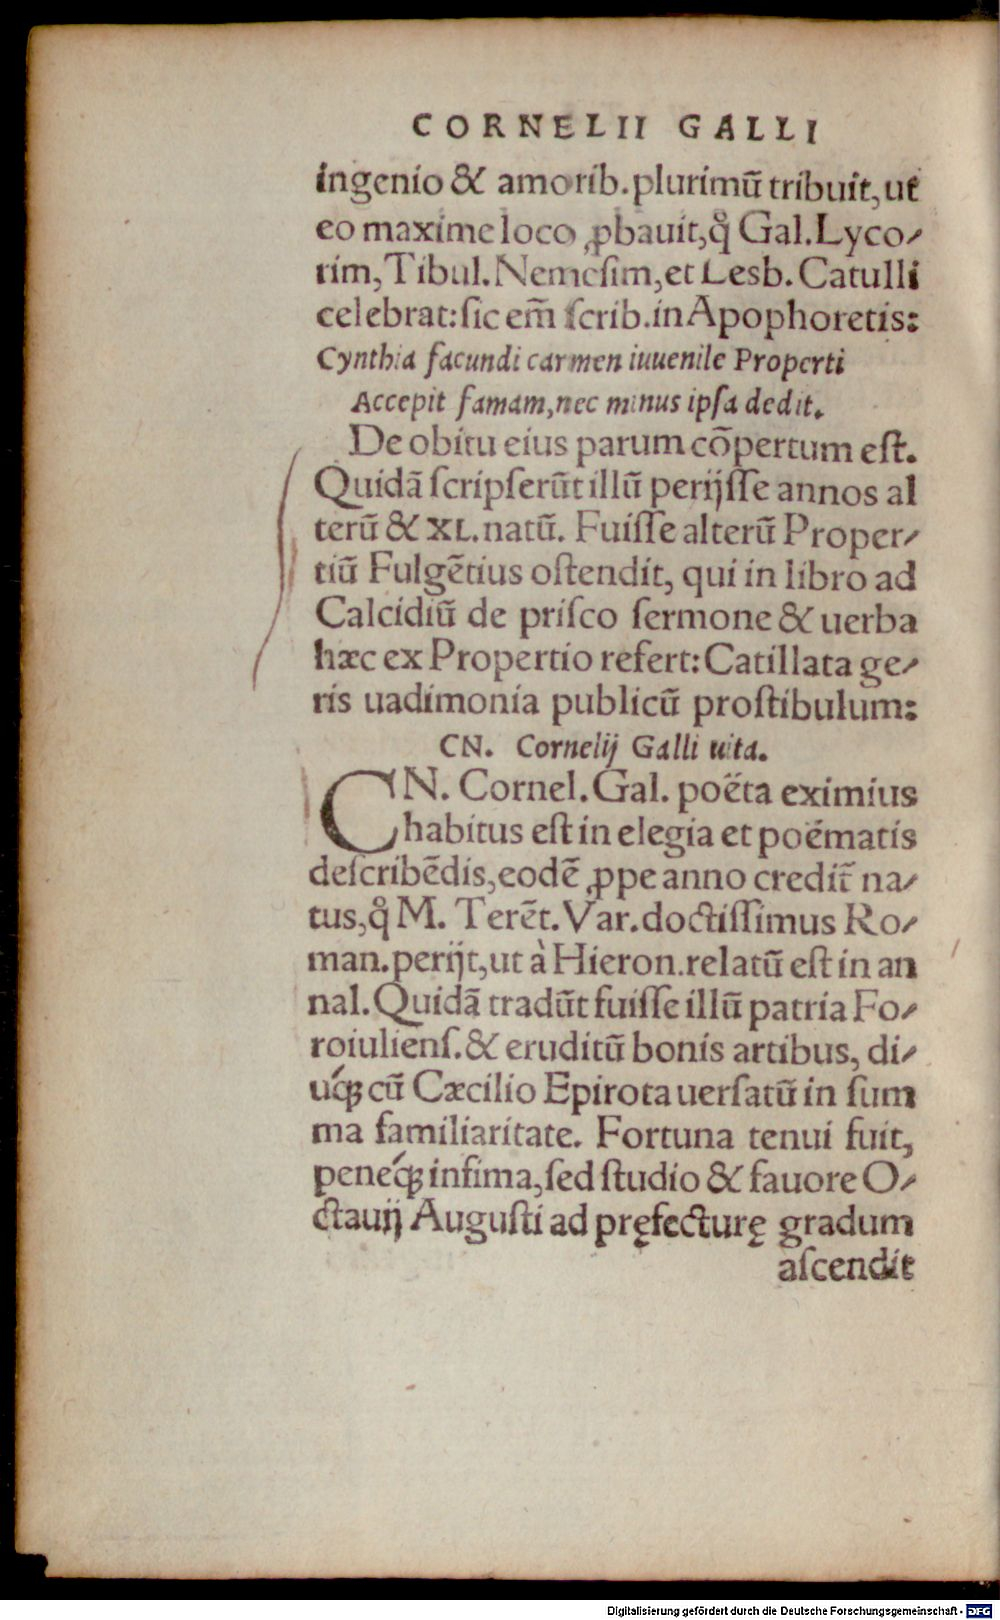 CORNELII GALLI
ingenio & amorib. plurimũ tribuit, ut
eo maxime loco ꝓbauit, q̊ Gal. Lyco⸗
rim, Tibul. Nemesim, et Lesb. Catulli
celebrat: sic em̃ scrib. in Apophoretis:
Cynthia facundi carmen iuuenile Properti
Accepit famam, nec minus ipſa dedit.
De obitu eius parum cõpertum eſt.
Quidã ſcripſerũt illũ perijſſe annos al
terũ & XL. natũ. Fuiſſe alterũ Proper⸗
tiũ Fulgẽtius oſtendit, qui in libro ad
Calcidiũ de priſco ſermone & uerba
hæc ex Propertio refert: Catillata ge⸗
ris uadimonia publicũ proſtibulum:
CN. Cornelij Galli uita.
CN. Cornel. Gal. poëta eximius
habitus eſt in elegia et poëmatis
deſcribẽdis, eodẽ ꝓpe anno credit̃ na⸗
tus, q̊ M. Terẽt. Var. doctiſſimus Ro⸗
man. perijt, ut à Hieron. relatũ eſt in an
nal. Quidã tradũt fuiſſe illũ patria Fo⸗
roiulienſ. & eruditũ bonis artibus, di⸗
uq́ꝫ cũ Cæcilio Epirota uerſatũ in ſum
ma familiaritate. Fortuna tenui fuit,
peneq́ꝫ infima, ſed ſtudio & fauore O⸗
ctauij Auguſti ad pręfecturę gradum
aſcendit
Digitalisierung gefördert durch die Deutsche Forschungsgemeinschaft - DFG